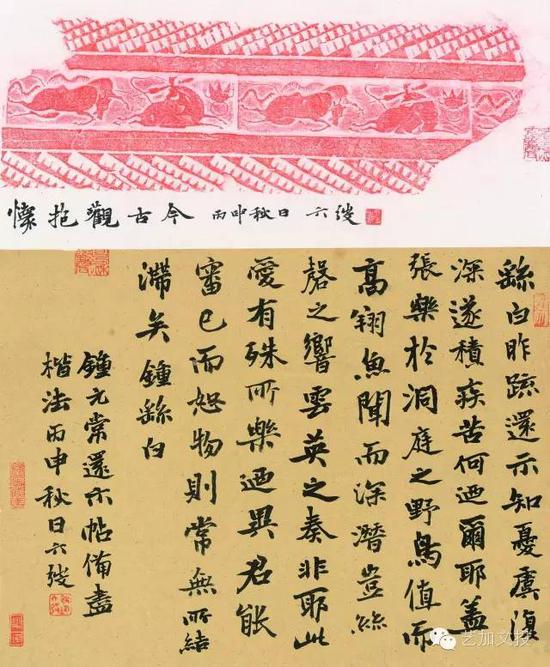 懷抱觀古今 丙申秋日 六弢
繇白昨疏還示知憂虞復
深遂積疾苦何迺爾耶蓋
張樂於洞庭之野鳥值而
高翔魚聞而深潛豈絲
磬之響雲英之奏非耶此
愛有殊所樂迺異君能
審己而恕物則常無所結
滯矣鍾繇白
鍾元常還示帖備盡
楷法丙申秋日六弢
艺加文投